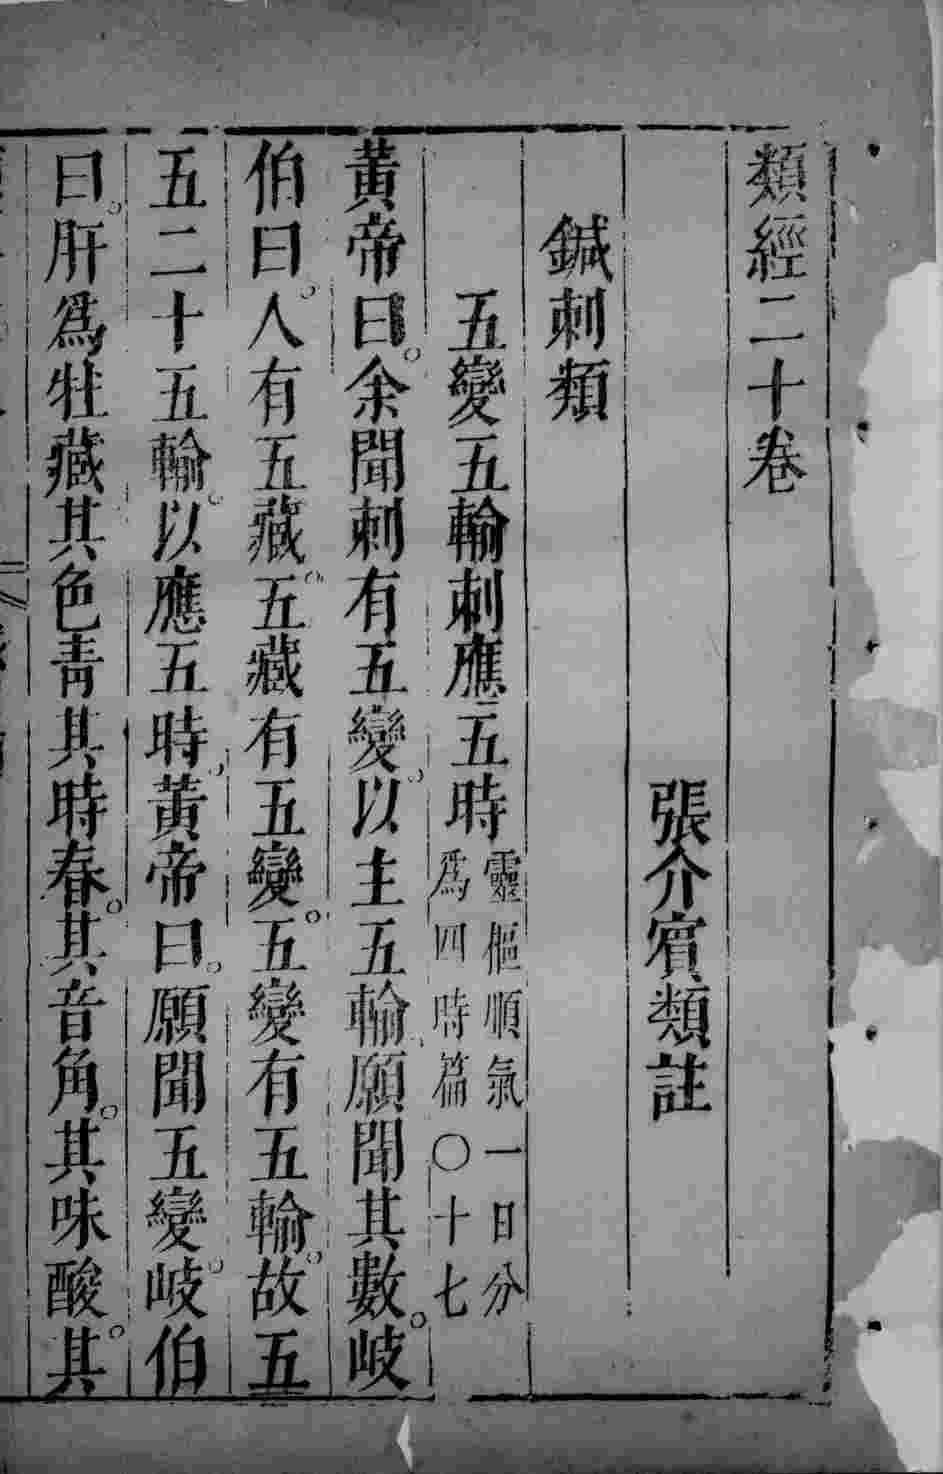 類經二十卷
張介賓類註
鍼刺類
五變五輸刺應五時靈樞順氣一日分爲四時篇〇十七
黃帝曰。余聞刺有五變。以主五輸。願聞其數。岐
伯曰。人有五藏。五藏有五變。五變有五輸。故五
五二十五輸。以應五時。黃帝曰。願聞五變。岐伯
曰。肝爲牡藏其色青其時春。其音角。其味酸。其